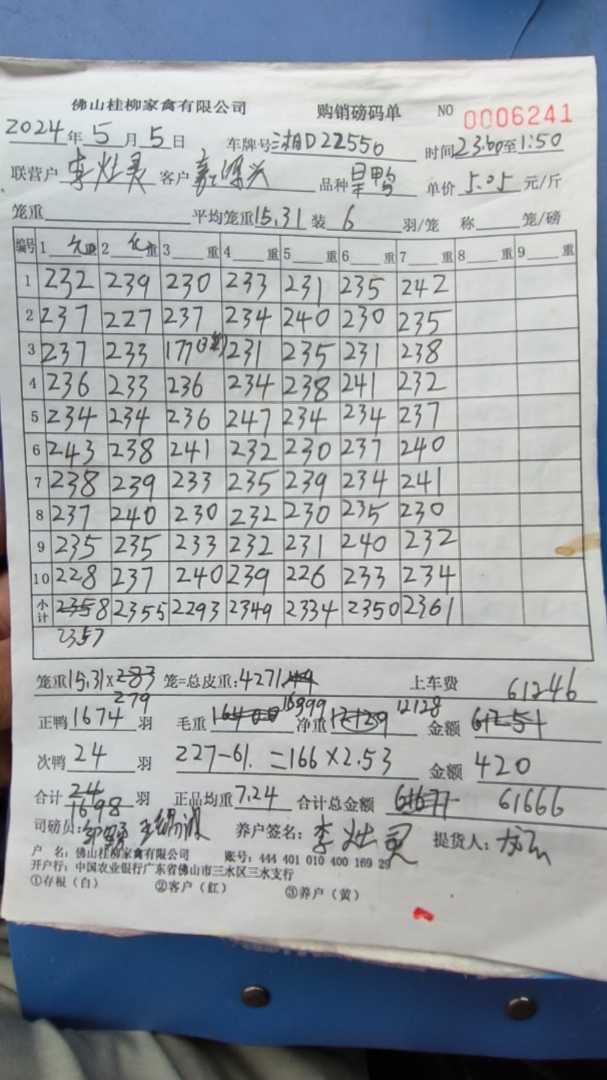 佛山桂柳家禽有限公司 购销磅码单 NO 0006241
2024年5月5日 车牌号 湘D22556 时间23:00至1:50
联营户 李灶灵 客户 品种 旱鸭 单价 5.05 元/斤
笼重 平均笼重15.31 装 6 羽/笼 称 笼/磅
编号 1 重 2 重 3 重 4 重 5 重 6 重 7 重 8 重 9 重
1 232 239 230 233 231 235 242
2 237 227 237 234 240 230 235
3 237 233 177 231 235 231 238
4 236 233 236 234 238 241 232
5 234 234 236 247 234 234 237
6 243 238 241 232 230 237 240
7 238 239 233 235 239 234 241
8 237 240 230 232 230 235 230
9 235 235 233 232 231 240 232
10 228 237 240 239 226 233 234
小计 2358 2355 2293 2349 2334 2350 2361
2357
笼重15.31×283 笼=总皮重:4271.44 上车费 61246
279 16399 12128
正鸭 1674 羽 毛重 16400 净重 12129 金额 61251
次鸭 24 羽 227-61=166×2.53 金额 420
合计 24 羽 正品均重 7.24 合计总金额 61677 61666
1698
司磅员: 养户签名: 李灶灵 提货人:
户 名: 佛山桂柳家禽有限公司 账号: 444 401 010 400 169 29
开户行: 中国农业银行广东省佛山市三水区三水支行
①存根(白) ②客户(红) ③养户(黄)